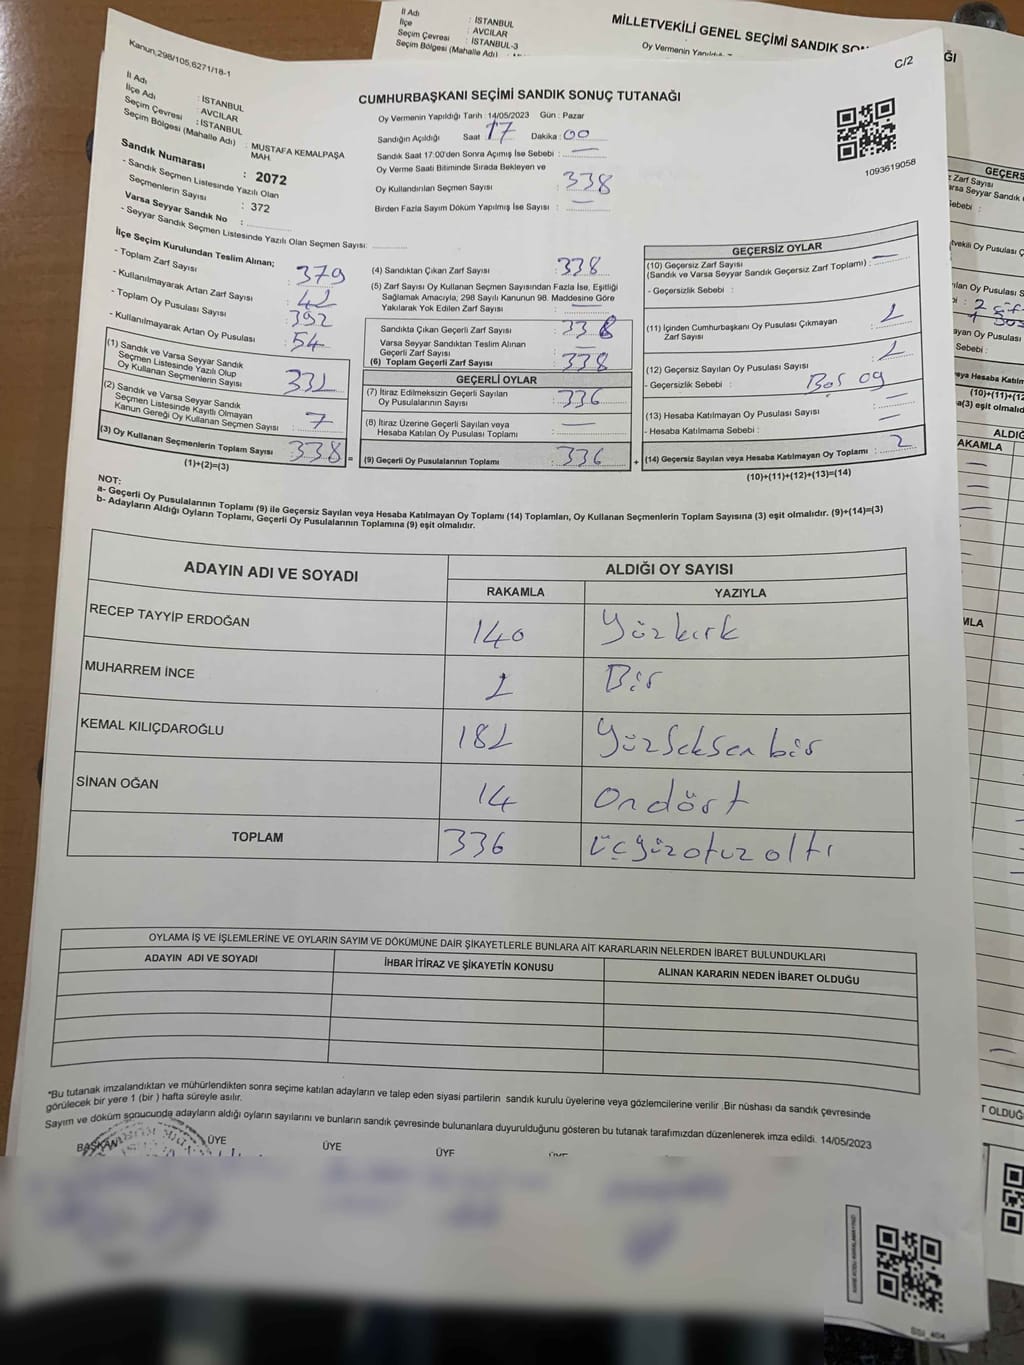 İl Adı : İSTANBUL
İlçe : AVCILAR
Seçim Çevresi : İSTANBUL-3
Seçim Bölgesi (Mahalle Adı) :
MİLLETVEKİLİ GENEL SEÇİMİ SANDIK
Kanun,298/105,6271/18-1
C/2
İl Adı : İSTANBUL
İlçe Adı : AVCILAR
Seçim Çevresi : İSTANBUL
Seçim Bölgesi (Mahalle Adı) : MUSTAFA KEMALPAŞA MAH.
Sandık Numarası : 2072
- Sandık Seçmen Listesinde Yazılı Olan
Seçmenlerin Sayısı : 372
Varsa Seyyar Sandık No :
- Seyyar Sandık Seçmen Listesinde Yazılı Olan Seçmen Sayısı:
CUMHURBAŞKANI SEÇİMİ SANDIK SONUÇ TUTANAĞI
Oy Vermenin Yapıldığı Tarih : 14/05/2023 Gün : Pazar
Sandığın Açıldığı Saat : 17 Dakika : 00
Sandık Saat 17:00'den Sonra Açımış İse Sebebi : —
Oy Verme Saati Bitiminde Sırada Bekleyen ve
Oy Kullandırılan Seçmen Sayısı : 338
Birden Fazla Sayım Döküm Yapılmış İse Sayısı : —
1093619058
İlçe Seçim Kurulundan Teslim Alınan;
- Toplam Zarf Sayısı : 379
- Kullanılmayarak Artan Zarf Sayısı : 41
- Toplam Oy Pusulası Sayısı : 392
- Kullanılmayarak Artan Oy Pusulası : 54
(1) Sandık ve Varsa Seyyar Sandık
Seçmen Listesinde Yazılı Olup
Oy Kullanan Seçmenlerin Sayısı : 331
(2) Sandık ve Varsa Seyyar Sandık
Seçmen Listesinde Kayıtlı Olmayan
Kanun Gereği Oy Kullanan Seçmen Sayısı : 7
(3) Oy Kullanan Seçmenlerin Toplam Sayısı : 338 =
(1)+(2)=(3)
(4) Sandıktan Çıkan Zarf Sayısı : 338
(5) Zarf Sayısı Oy Kullanan Seçmen Sayısından Fazla İse, Eşitliği
Sağlamak Amacıyla; 298 Sayılı Kanunun 98. Maddesine Göre
Yakılarak Yok Edilen Zarf Sayısı : —
Sandıkta Çıkan Geçerli Zarf Sayısı : 338
Varsa Seyyar Sandıktan Teslim Alınan
Geçerli Zarf Sayısı : —
(6) Toplam Geçerli Zarf Sayısı : 338
GEÇERLİ OYLAR
(7) İtiraz Edilmeksizin Geçerli Sayılan
Oy Pusulalarının Sayısı : 336
(8) İtiraz Üzerine Geçerli Sayılan veya
Hesaba Katılan Oy Pusulası Toplamı : —
(9) Geçerli Oy Pusulalarının Toplamı : 336 +
GEÇERSİZ OYLAR
(10) Geçersiz Zarf Sayısı
(Sandık ve Varsa Seyyar Sandık Geçersiz Zarf Toplamı) : —
- Geçersizlik Sebebi :
(11) İçinden Cumhurbaşkanı Oy Pusulası Çıkmayan
Zarf Sayısı : 1
(12) Geçersiz Sayılan Oy Pusulası Sayısı : 1
- Geçersizlik Sebebi : Boş oy
(13) Hesaba Katılmayan Oy Pusulası Sayısı : —
- Hesaba Katılmama Sebebi : —
(14) Geçersiz Sayılan veya Hesaba Katılmayan Oy Toplamı : 2
(10)+(11)+(12)+(13)=(14)
NOT:
a- Geçerli Oy Pusulalarının Toplamı (9) ile Geçersiz Sayılan veya Hesaba Katılmayan Oy Toplamı (14) Toplamları, Oy Kullanan Seçmenlerin Toplam Sayısına (3) eşit olmalıdır. (9)+(14)=(3)
b- Adayların Aldığı Oyların Toplamı, Geçerli Oy Pusulalarının Toplamına (9) eşit olmalıdır.
ADAYIN ADI VE SOYADI ALDIĞI OY SAYISI
RAKAMLA YAZIYLA
RECEP TAYYİP ERDOĞAN 140 Yüzkırk
MUHARREM İNCE 1 Bir
KEMAL KILIÇDAROĞLU 181 Yüzseksen bir
SİNAN OĞAN 14 Ondört
TOPLAM 336 Üçyüzotuz altı
OYLAMA İŞ VE İŞLEMLERİNE VE OYLARIN SAYIM VE DÖKÜMÜNE DAİR ŞİKAYETLERLE BUNLARA AİT KARARLARIN NELERDEN İBARET BULUNDUKLARI
ADAYIN ADI VE SOYADI İHBAR İTİRAZ VE ŞİKAYETİN KONUSU ALINAN KARARIN NEDEN İBARET OLDUĞU
*Bu tutanak imzalandıktan ve mühürlendikten sonra seçime katılan adayların ve talep eden siyasi partilerin sandık kurulu üyelerine veya gözlemcilerine verilir .Bir nüshası da sandık çevresinde
görülecek bir yere 1 (bir ) hafta süreyle asılır.
Sayım ve döküm sonucunda adayların aldığı oyların sayılarını ve bunların sandık çevresinde bulunanlara duyurulduğunu gösteren bu tutanak tarafımızdan düzenlenerek imza edildi. 14/05/2023
BAŞKAN ÜYE ÜYE ÜYE